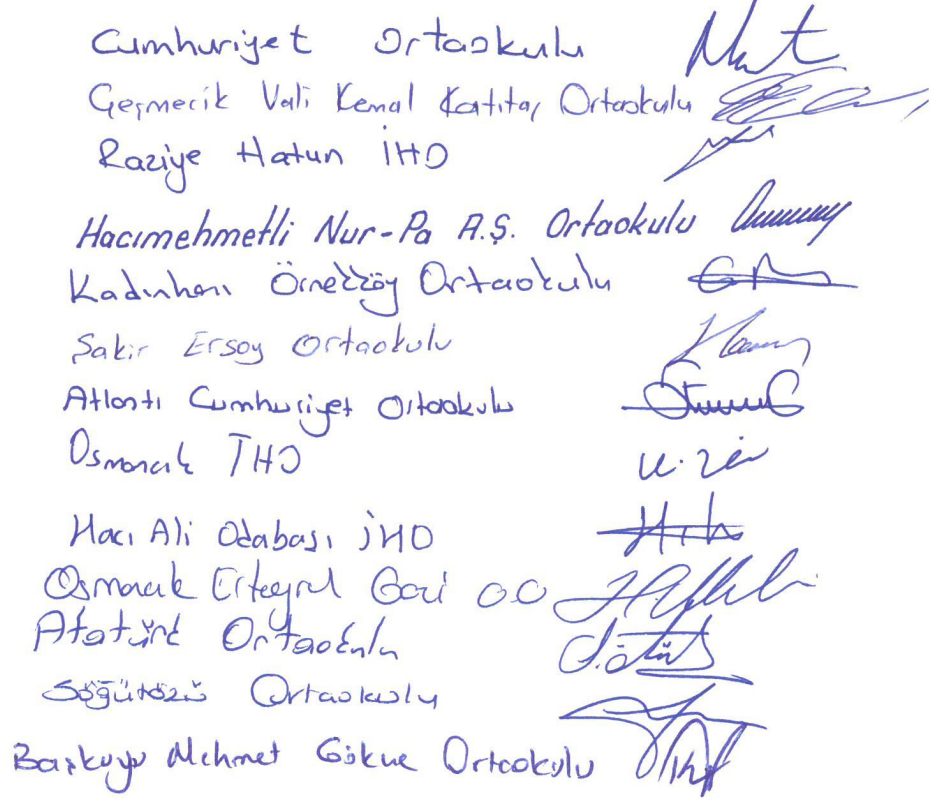 Cumhuriyet Ortaokulu
Geçmecik Vali Kemal Katıtaş Ortaokulu
Raziye Hatun İHO
Hacımehmetli Nur-Pa A.Ş. Ortaokulu
Kadınhanı Örnekköy Ortaokulu
Şakir Ersoy Ortaokulu
Atlantı Cumhuriyet Ortaokulu
Osmancık İHO
Hacı Ali Odabaşı İHO
Osmancık Ertuğrul Gazi OO
Atatürk Ortaokulu
Söğütözü Ortaokulu
Başkuyu Mehmet Gökce Ortaokulu